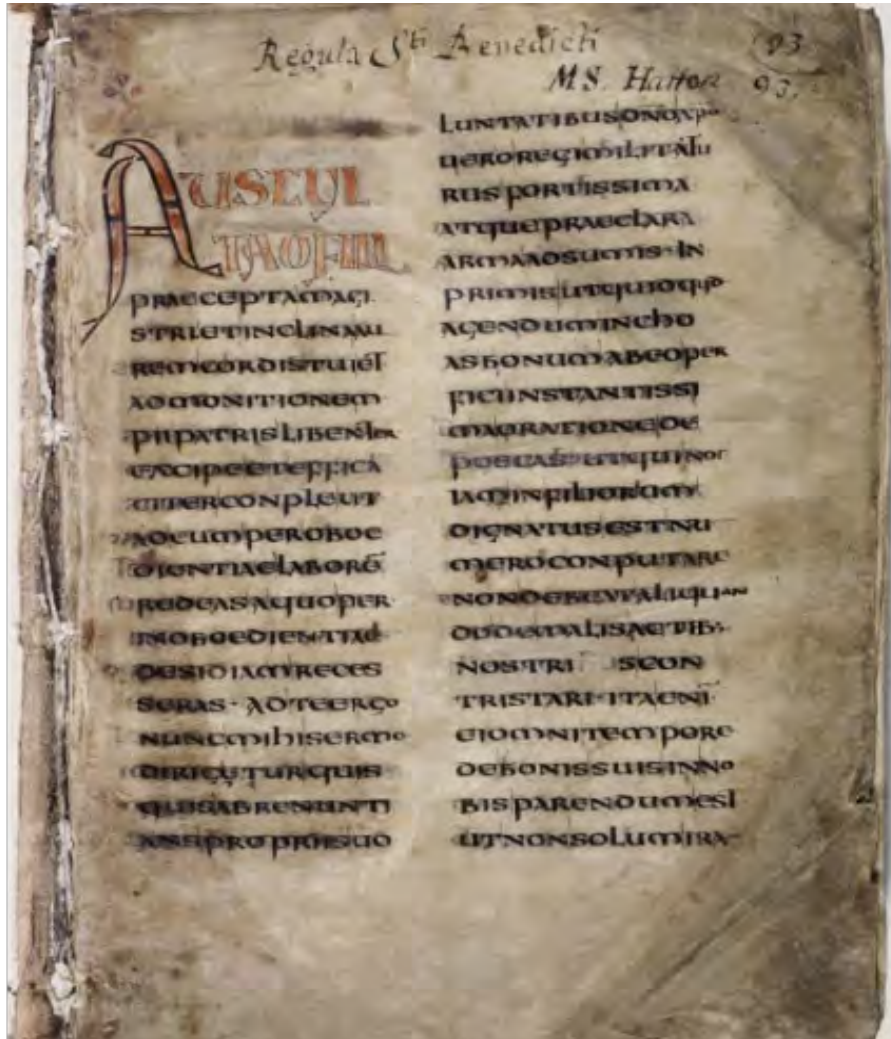 Regula Sti Benedicti
MS. Hatton 93.
93
AUSCUL
TAOFILI
PRAECEPTAMAGI
STRIETINCLINAAU
REMCORDISTUIET
ADMONITIONEM
PIIPATRISLIBENTER
EXCIPEETEFFICA
CITERCONPLEUT
ADEUMPEROBOE
DIENTIAELABORE
REDEASAQUOPER
INOBOEDIENTIAE
DESIDIAMRECES
SERAS · ADTEERGO
NUNCMIHISERMO
DIRIGITURQUIS
QUISABRENUNTI
ANSPROPRIISUO
LUNTATIBUSDNOXPO
UEROREGIMILITATU
RUSFORTISSIMA
ATQUEPRAECLARA
ARMAADSUMIS · IN
PRIMISUTQUIDQUID
AGENDUMINCHO
ASBONUMABEOPER
FICIINSTANTISSI
MAORATIONEDE
POSCASUTQUINOS
IAMINFILIORUM
DIGNATUSESTNU
MEROCONPUTARE
NONDEBEATALIQUAN
DODEMALISACTIB:
NOSTRI SCON
TRISTARI · ITAENI
EIOMNITEMPORE
DEBONISSUISINNO
BISPARENDUMEST
UTNONSOLUMIRA